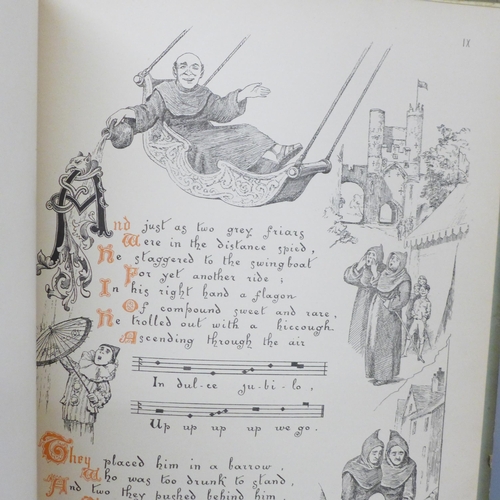 IX
And just as two grey friars
Were in the distance spied,
He staggered to the swingboat
For yet another ride;
In his right hand a flagon
Of compound sweet and rare,
He trolled out with a hiccough
Ascending through the air
In dul-ce ju-bi-lo,
Up up up up we go.
They placed him in a barrow,
Who was too drunk to stand,
And two they pushed behind him